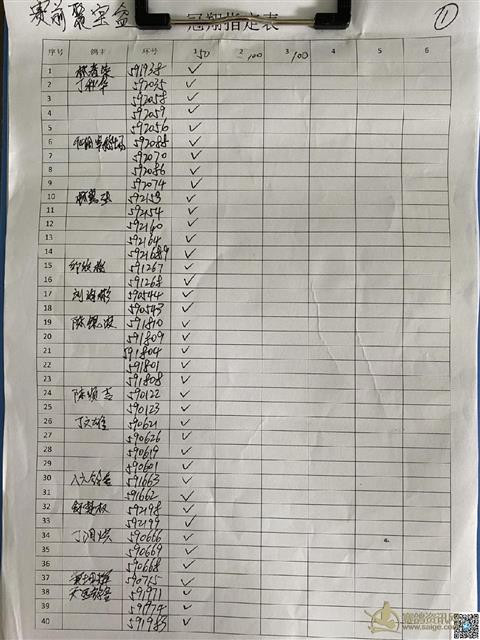 赛前聚宝盆 冠翔指定表 ①
序号 鸽主 环号 1 50 2 100 3 100 4 5 6
1 591938 ✓
2 丁秋华 592035 ✓
3 592058 ✓
4 592059 ✓
5 592056 ✓
6 592085 ✓
7 592070 ✓
8 592086 ✓
9 592074 ✓
10 592153 ✓
11 592154 ✓
12 592160 ✓
13 592164 ✓
14 ✓
15 591267 ✓
16 591268 ✓
17 590544 ✓
18 590543 ✓
19 591810 ✓
20 591809 ✓
21 591804 ✓
22 591801 ✓
23 591808 ✓
24 陈顺吉 590122 ✓
25 590123 ✓
26 丁文雄 590621 ✓
27 590626 ✓
28 590619 ✓
29 590601 ✓
30 591663 ✓
31 591662 ✓
32 592198 ✓
33 592199 ✓
34 590666 ✓
35 590669 ✓
36 590668 ✓
37 590715 ✓
38 591971 ✓
39 591974 ✓
40 591985 ✓
赛鸽资讯网
www.saige.com